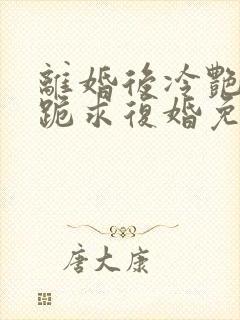 離婚後冷艷
跪求復婚免
唐大康